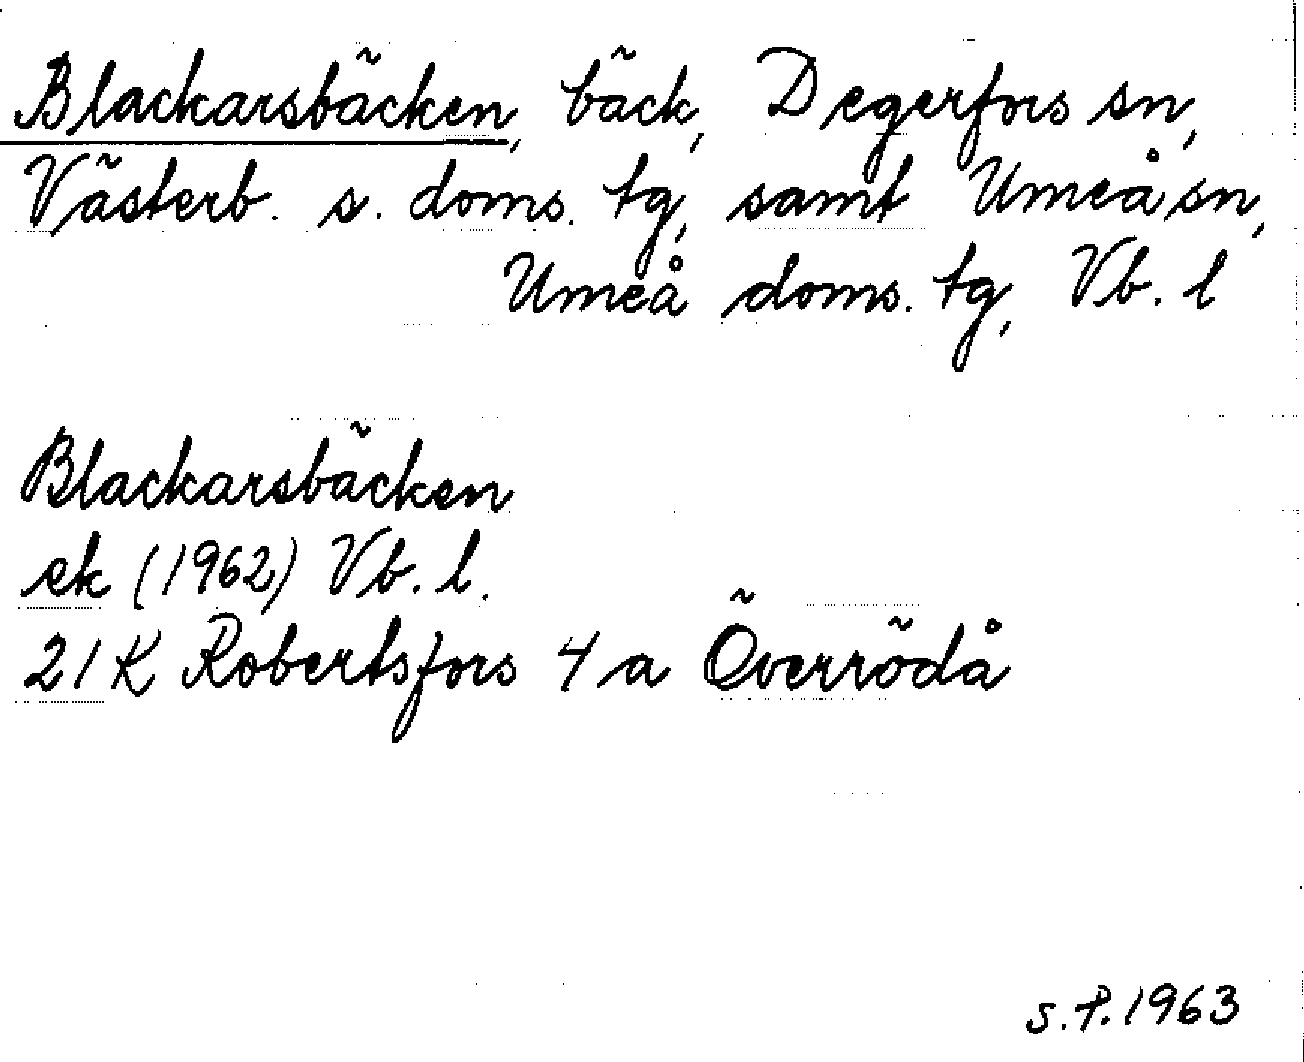 Blackarsbäcken, bäck, Degerfors sn,
Västerb. s. doms. tg, samt Umeå sn,
Umeå doms. tg, Vb. l
Blackarsbäcken
ek (1962) Vb. l.
21K Robertsfors 4a Överrödå
S.P. 1963